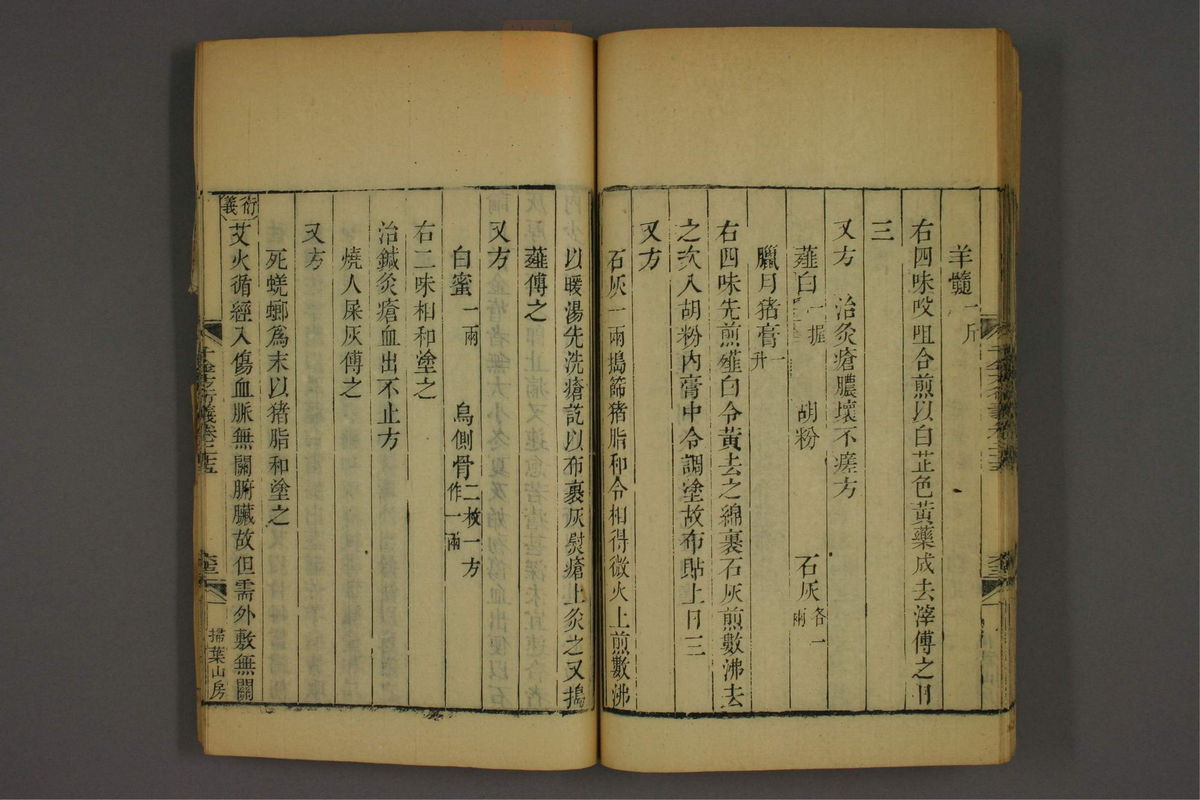 羊髓一斤
右四味㕮咀合煎以白芷色黃藥成去滓傅之日
三
又方　治灸瘡膿壞不瘥方
薤白一握　胡粉　石灰各一兩
臘月猪膏一升
右四味先煎薤白令黃去之綿裹石灰煎數沸去
之次入胡粉內膏中令調塗故布貼上日三
又方
石灰一兩搗篩猪脂和令相得微火上煎數沸
以暖湯先洗瘡訖以布裹灰熨瘡上灸之又搗
薤傅之
又方
白蜜一兩　烏側骨二枚一方作一兩
右二味相和塗之
治鍼灸瘡血出不止方
燒人屎灰傅之
又方
死蜣螂爲末以猪脂和塗之
衍義
艾火循經入傷血脈無關腑臟故但需外敷無關
千金方衍義卷二十五
掃葉山房